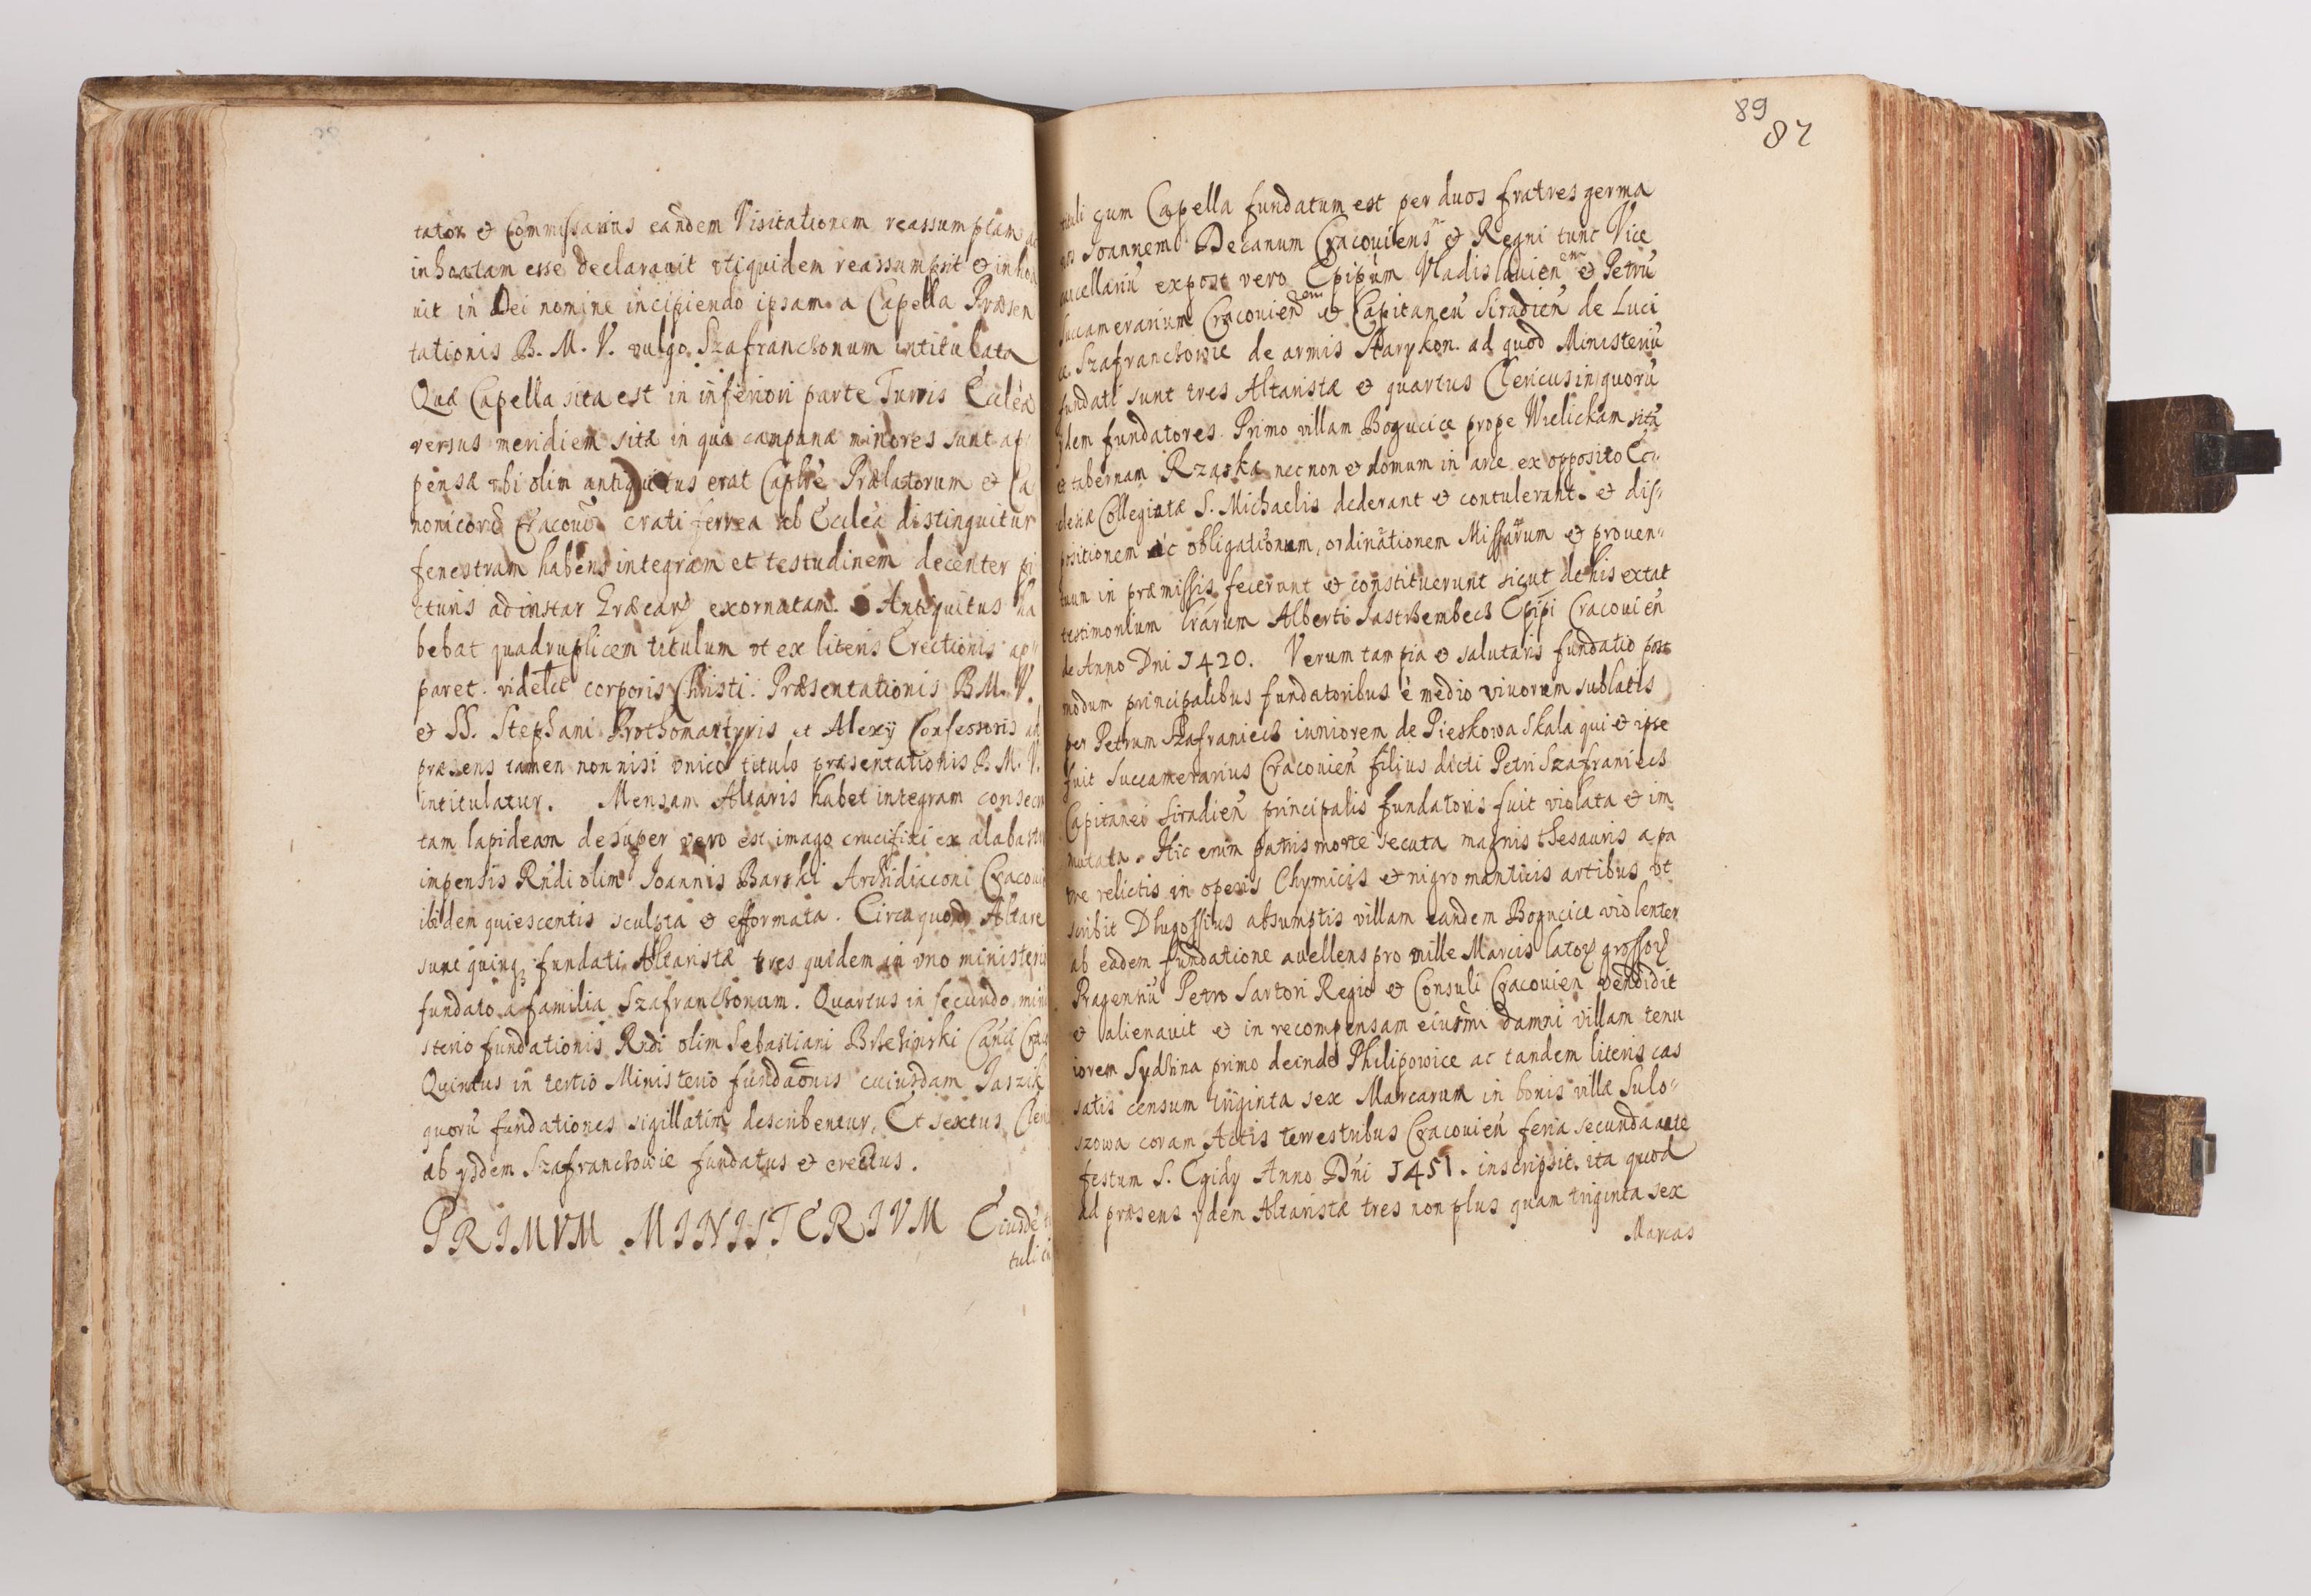 tator et Commissarius eandem Visitationem reassumptam
inhoatam esse declarauit utiquidem reassumpsit et inhoa
uit in Dei nomine incipiendo ipsam a Capella Præsen
tationis B. M. V. vulgo Szafranchonum intitulata
Quæ Capella sita est in inferiori parte Turris Eccleæ
versus meridiem sitæ in qua campanæ minores sunt ap
pensæ vbi olim antiquitus erat Caplre Prælatorum et Ca
nonicorũ Cracoui crati ferrea ab Ecclea distinguitur
fenestram habens integram et testudinem decenter pi
cturis ad instar Græcarꝝ exornatam. Antiquitus ha
bebat quadruplicem titulum vt ex literis Erectionis ap
paret. videlct corporis Christi. Præsentationis B. M. V.
et SS. Stephani Prothomartyris et Alexy Confessoris ad
præsens tamen non nisi vnico titulo præsentationis B. M. V.
intitulatur. Mensam Altaris habet integram consecra
tam lapideam desuper vero est imago crucifixi ex alabastro
impensis Rndi olim Joannis Barski Archidiaconi Cracoui
ibidem quiescentis sculpta et efformata. Circa quod Altare
sunt quinqꝫ fundati Altaristæ tres quidem in vno ministerio
fundato a familia Szafranchonum. Quartus in secundo mini
sterio fundationis Rndi olim Sebastiani Canci
Quintus in tertio Ministerio fundaõnis cuiusdam Jaszik
quorũ fundationes sigillatim describentur. Et sextus Cleri
ab ysdem Szafranchowie fundatus et erectus.
PRIMVM MINISTERIVM Eiusdẽ ti
tuli cu
89
87
tituli cum Capella fundatum est per duos fratres germa
nos Joannem Decanum Cracouiens et Regni tunc Vice
cancellariũ expost vero Epipum Vladislauien et Petrũ
Succamerarium Cracouien et Capitaneũ Siradień de Luci
ce Szafranchowie de armis Starykon. ad quod Ministeriũ
fundati sunt tres Altaristæ et quartus Clericus in quorũ
ydem fundatores. Primo villam Bogucice prope Wielickam sitã
et tabernam Rząska necnon et domum in arce ex opposito Ec
clesiæ Collegiatæ S. Michaelis dederant et contulerant. et dis
positionem ac obligationum, ordinationem Missarum et prouen
tuum in præmissis fecerunt et constituerunt sicut de his extat
testimonium lrarum Alberti Jastrhembech Epipi Cracouień
de Anno Dni 1420. Verum tam pia et salutaris fundatio post
modum principalibus fundatoribus è medio viuorum sublatis
per Petrum Szafraniech iuniorem de Pieskowa Skala qui et ipse
fuit Succamerarius Cracouień filius dicti Petri Szafraniech
Capitanei Siradień principalis fundatoris fuit violata et im
mutata. Hic enim patris morte secuta magnis thesauris a pa
tre relictis in operis Chymicis et nigromanticis artibus vt
scribit Dlugossius absumptis villam eandem Bogucice violenter
ab eadem fundatione auellens pro mille Marcis latoꝝ grossoꝝ
Pragensiũ Petro Sartori Regio et Consuli Cracouien vendidit
et alienauit et in recompensam eiusmi damni villam tenu
iorem Sydzina primo deinde Philipowice ac tandem literis cas
satis censum triginta sex Marcarum in bonis villæ Sulo
szowa coram Actis terrestribus Cracouień feria secunda ante
festum S. Egidy Anno Dni 1451. inscripsit. ita quod
ad præsens ydem Altaristæ tres non plus quam triginta sex
Marcas